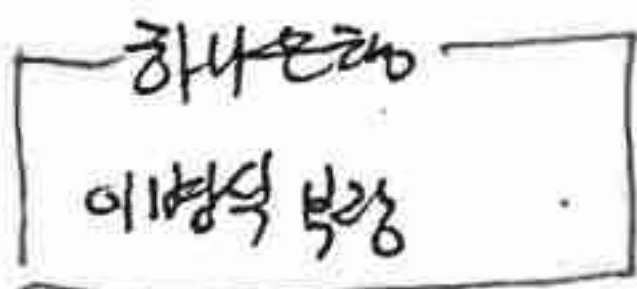 하나은행
이병식 부장